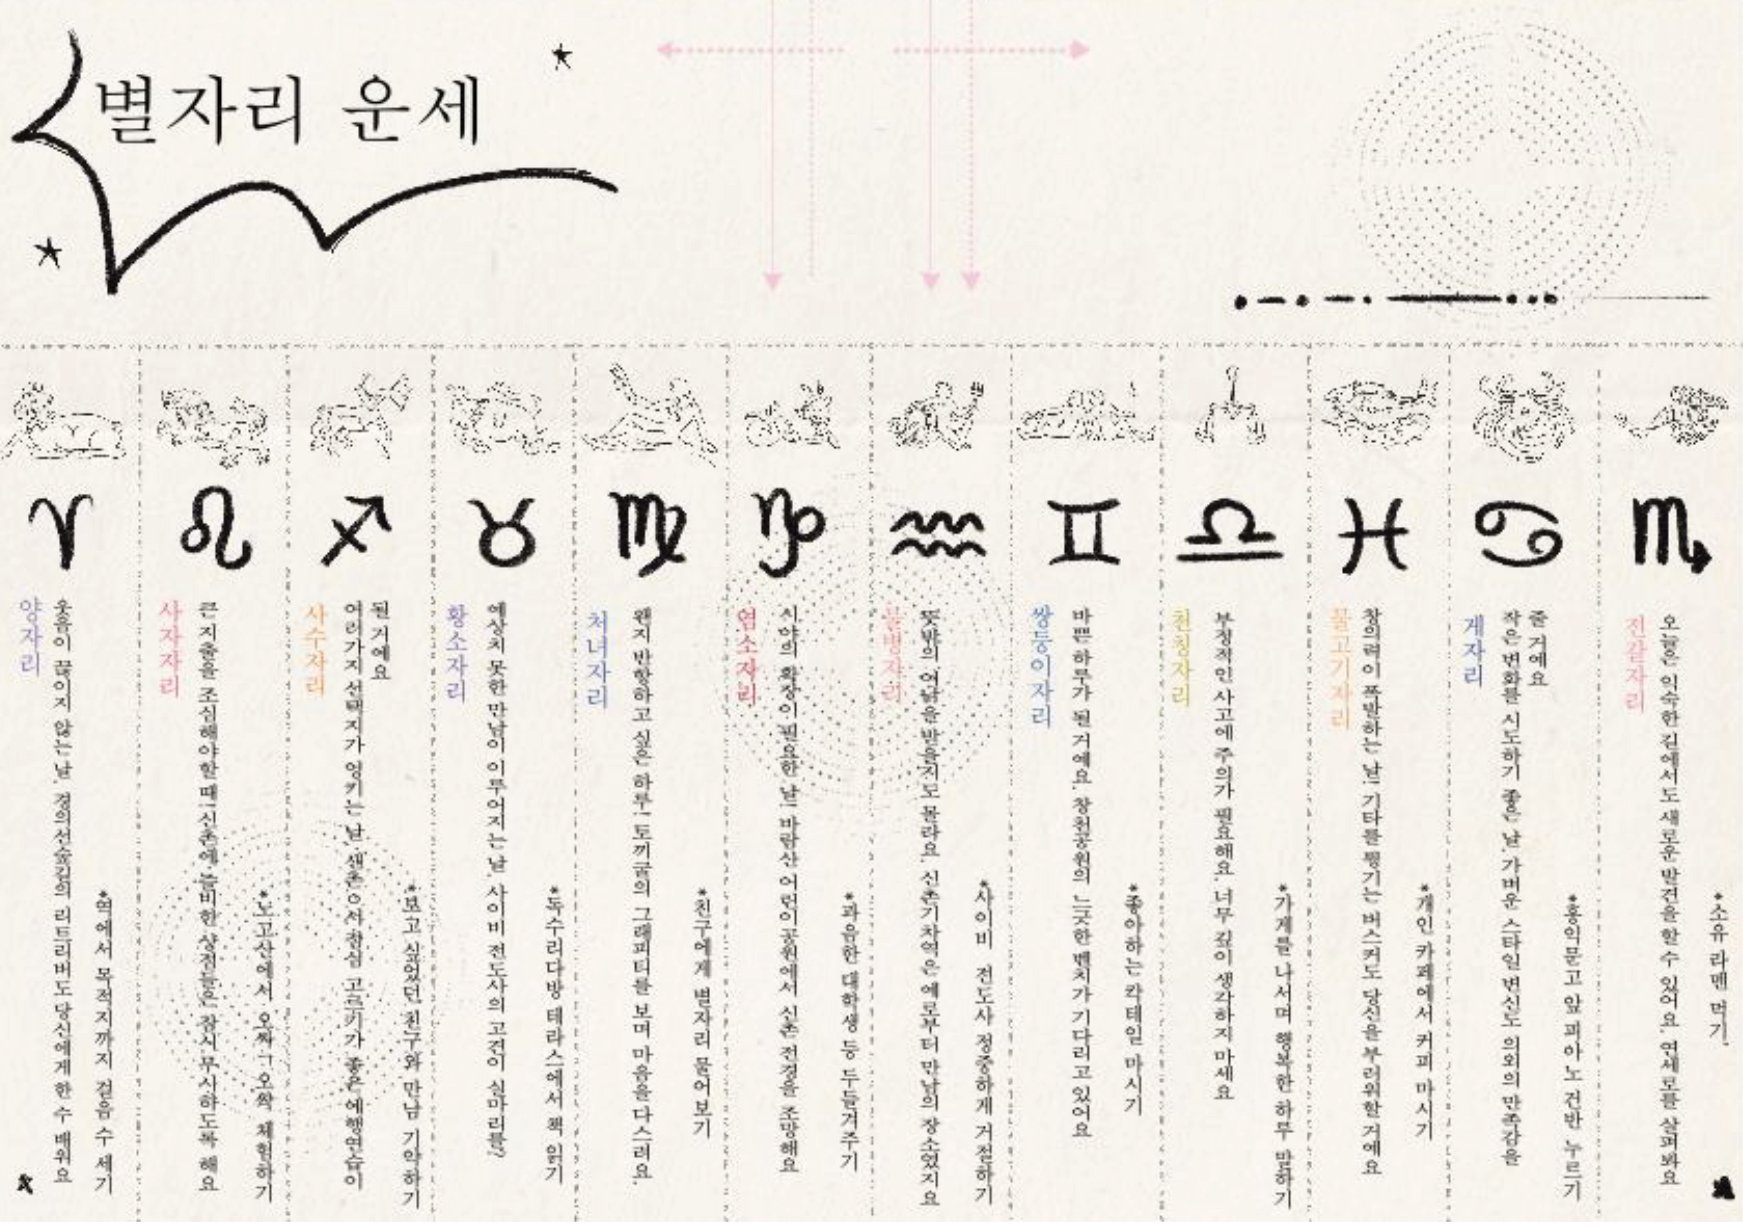 별자리 운세
양자리
웃음이 끊이지 않는 날 경의선숲길의 리트리버도 당신에게 한 수 배워요
*역에서 목적지까지 걸음 수 세기
사자자리
큰 지출을 조심해야할 때! 신촌에 즐비한 상점들은 잠시 무시하도록 해요
*노고산에서 오싹 체험하기
사수자리
여러가지 선택지가 엉키는 날 점심 고르기가 좋은 예행연습이
될 거예요
*보고 싶었던 친구와 만남 기약하기
황소자리
예상치 못한 만남이 이루어지는 날 사이비 전도사의 고견이 실마리를?
*독수리다방 테라스에서 책 읽기
처녀자리
왠지 반항하고 싶은 하루! 토끼굴의 그래피티를 보며 마음을 다스려요.
*친구에게 별자리 물어보기
염소자리
시야의 확장이 필요한 날! 바람산 어린이공원에서 신촌 전경을 조망해요
*과음한 대학생 등 두들겨주기
물병자리
뜻밖의 여닯을 받을지도 몰라요 신촌기차역은 예로부터 만남의 장소였지요
*사이비 전도사 정중하게 거절하기
쌍둥이자리
바쁜 하루가 될 거예요. 창천공원의 느긋한 벤치가 기다리고 있어요
*좋아하는 칵테일 마시기
천칭자리
부정적인 사고에 주의가 필요해요 너무 깊이 생각하지 마세요
*가게를 나서며 행복한 하루 말하기
물고기자리
창의력이 폭발하는 날! 기타를 튕기는 버스커도 당신을 부러워할 거예요
*개인 카페에서 커피 마시기
게자리
작은 변화를 시도하기 좋은 날 가벼운 스타일 변신도 의외의 만족감을
줄 거예요
*홍익문고 앞 피아노 건반 누르기
전갈자리
오늘은 익숙한 길에서도 새로운 발견을 할 수 있어요 연세로를 살펴봐요
*소유 라멘 먹기.